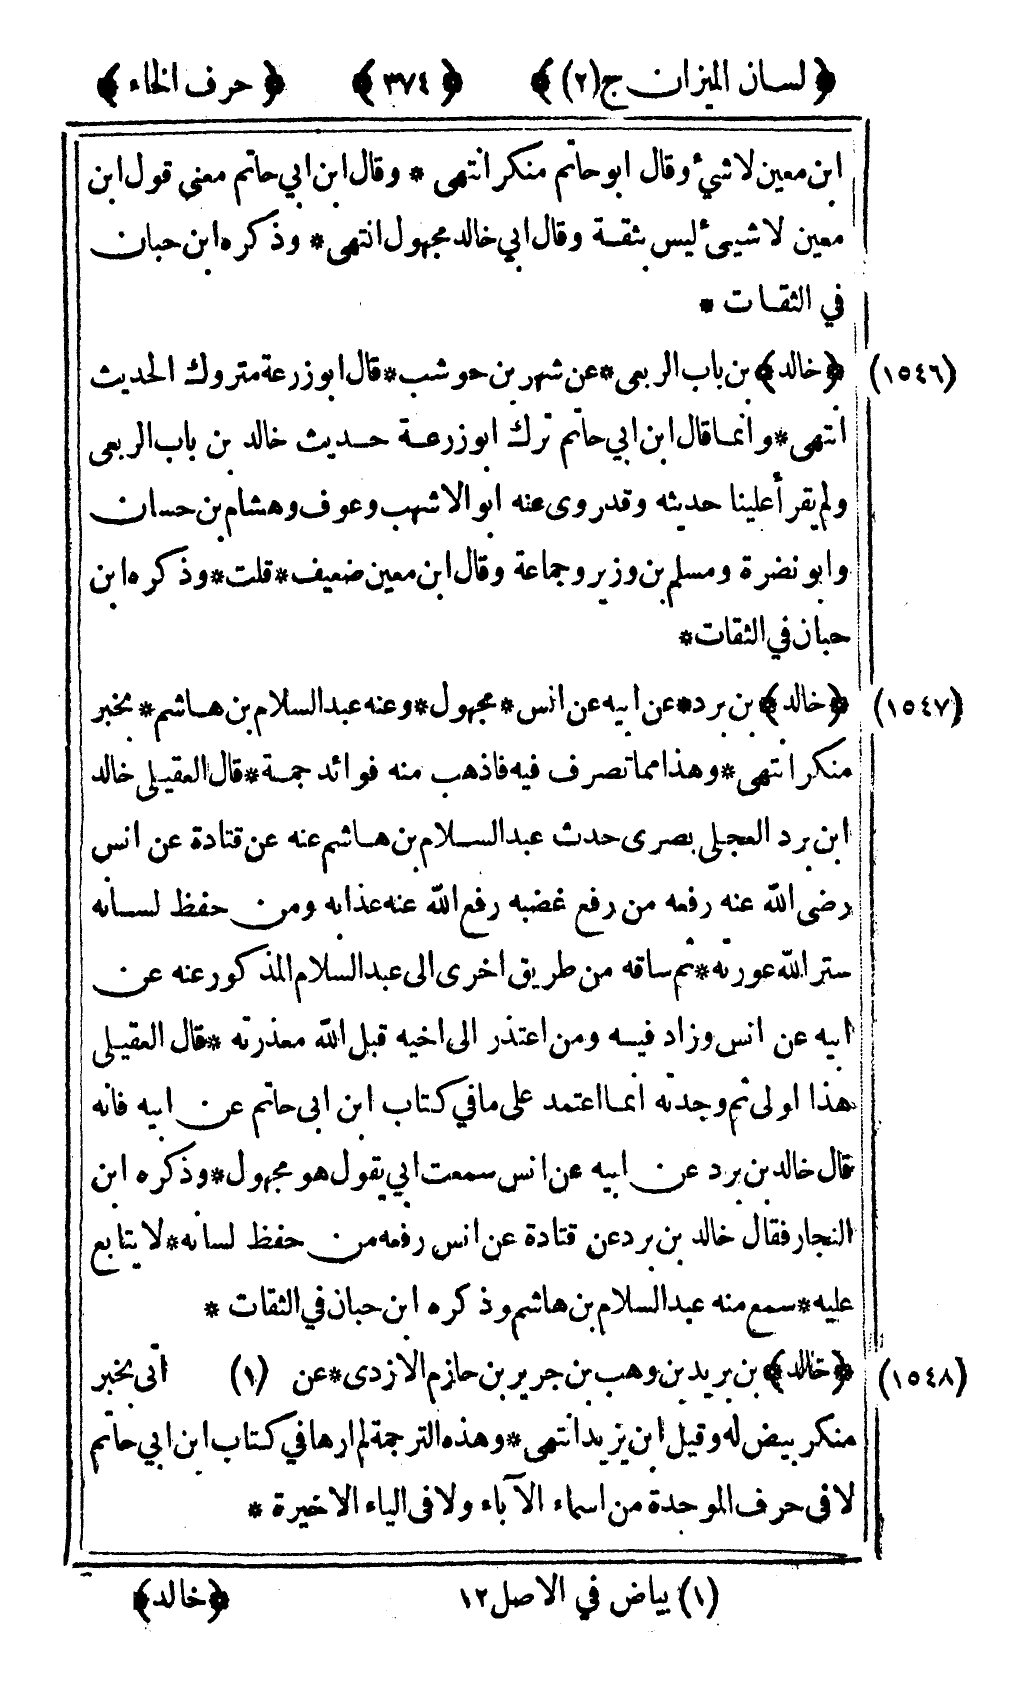 ﴿ لسان الميزان ج(٢) ﴾ ﴿ ٣٧٤ ﴾ ﴿ حرف الخاء ﴾
ابن معين لا شئ وقال ابو حاتم منكر انتهى * وقال ابن ابي حاتم معنى قول ابن
معين لا شيىٔ ليس بثقة وقال ابي خالد مجهول انتهى * وذكره ابن حبان
في الثقات *
(١٥٤٦) ﴿ خالد ﴾ بن باب الربعى * عن شهر بن حوشب * قال ابو زرعة متروك الحديث
انتهى * وانما قال ابن ابي حاتم ترك ابو زرعة حديث خالد بن باب الربعى
ولم يقرأ علينا حديثه وقد روى عنه ابو الاشهب وعوف وهشام بن حسان
وابو نضرة ومسلم بن وزير وجماعة وقال ابن معين ضعيف * قلت * وذكره ابن
حبان في الثقات *
(١٥٤٧) ﴿ خالد ﴾ بن برد * عن ابيه عن انس * مجهول * وعنه عبد السلام بن هاشم * بخبر
منكر انتهى * وهذا مما تصرف فيه فاذهب منه فوائد جمة * قال العقيلى خالد
ابن برد العجلى بصرى حدث عبد السلام بن هاشم عنه عن قتادة عن انس
رضى الله عنه رفعه من رفع غضبه رفع الله عنه عذابه ومن حفظ لسانه
ستر الله عورته * ثم ساقه من طريق اخرى الى عبد السلام المذكور عنه عن
ابيه عن انس وزاد فيه ومن اعتذر الى اخيه قبل الله معذرته * قال العقيلى
هذا اولى ثم وجدته انما اعتمد على ما في كتاب ابن ابى حاتم عن ابيه فانه
قال خالد بن برد عن ابيه عن انس سمعت ابي يقول هو مجهول * وذكره ابن
النجار فقال خالد بن برد عن قتادة عن انس رفعه من حفظ لسانه * لا يتابع
عليه * سمع منه عبد السلام بن هاشم وذكره ابن حبان في الثقات *
(١٥٤٨) ﴿ خالد ﴾ بن بريد بن وهب بن جرير بن حازم الازدى * عن (١) اتى بخبر
منكر بيض له وقيل ابن يزيد انتهى * وهذه الترجمة لم ارها في كتاب ابن ابي حاتم
لا فى حرف الموحدة من اسماء الآباء ولا فى الياء الاخيرة *
(١) بياض في الاصل ١٢ ﴿ خالد ﴾